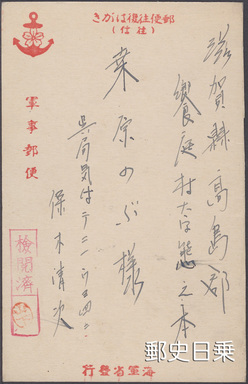 郵便往復はがき
(往信)
軍事郵便
滋賀縣高島郡
饗庭村大字熊之本
桒原のぶ様
呉局気付
保木清次
検閲済
海軍省發行
郵史日乗